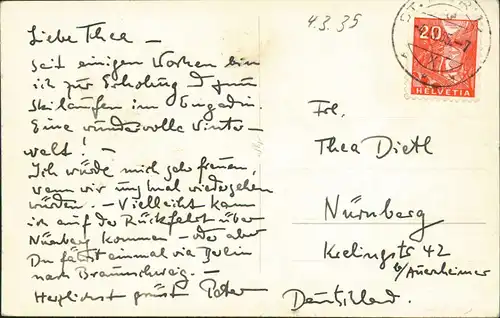 4.3.35
Liebe Thea –
seit einigen Wochen bin
ich zur Erholung & zum
Skilaufen im Engadin.
Eine wundervolle Winter-
welt! –
Ich würde mich sehr freuen,
wenn wir uns mal wiedersehen
würden. – Vielleicht kann
ich auf der Rückfahrt über
Nürnberg kommen – oder aber
Du fährst einmal via Berlin
nach Braunschweig. –
Herzlichst grüsst Peter
20
HELVETIA
Frl.
Thea Dietl
Nürnberg
Keelingstr 42
b/Auernheimer
Deutschland.